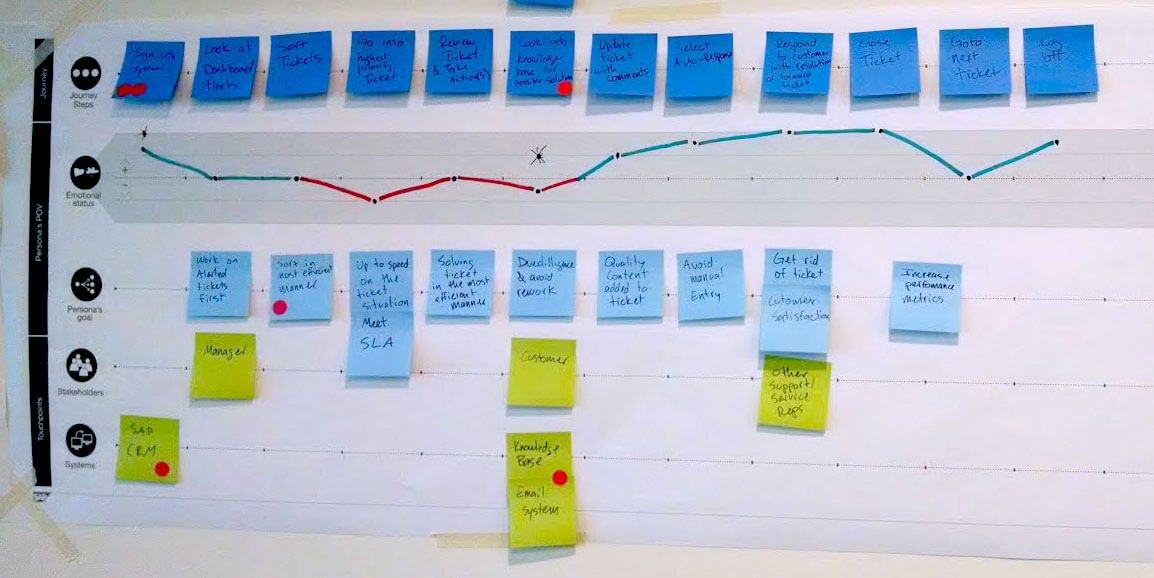 Journey
Journey
Steps
Sign into
system
Look at
Dashboard
Alerts
Sort
Tickets
Go into
highest
priority
Ticket
Review
Ticket
& Take
Action(s)
Look into
Knowledge
base for
possible solution
Update
ticket
with
comments
Select
Auto-Respond
Respond
to customer
with resolution
or forward
ticket
Close
Ticket
Go to
next
ticket
Log
off
Persona's POV
Emotional
status
+
-
Persona's
goal
Work on
Alerted
tickets
First
Sort in
most efficient
manner
Up to speed
on the
ticket
situation
Meet
SLA
Solving
ticket
in the most
efficient
manner
Duedilligence
& avoid
rework
Quality
Content
added to
ticket
Avoid
manual
Entry
Get rid
of ticket
Cutomer
Satisfaction
Increase
perfomance
metrics
Touchpoints
Stakeholders
Manager
Customer
Other
Support/
Service
Reps
Systems
SAP
CRM
Knowledge
Base
Email
System
SAP